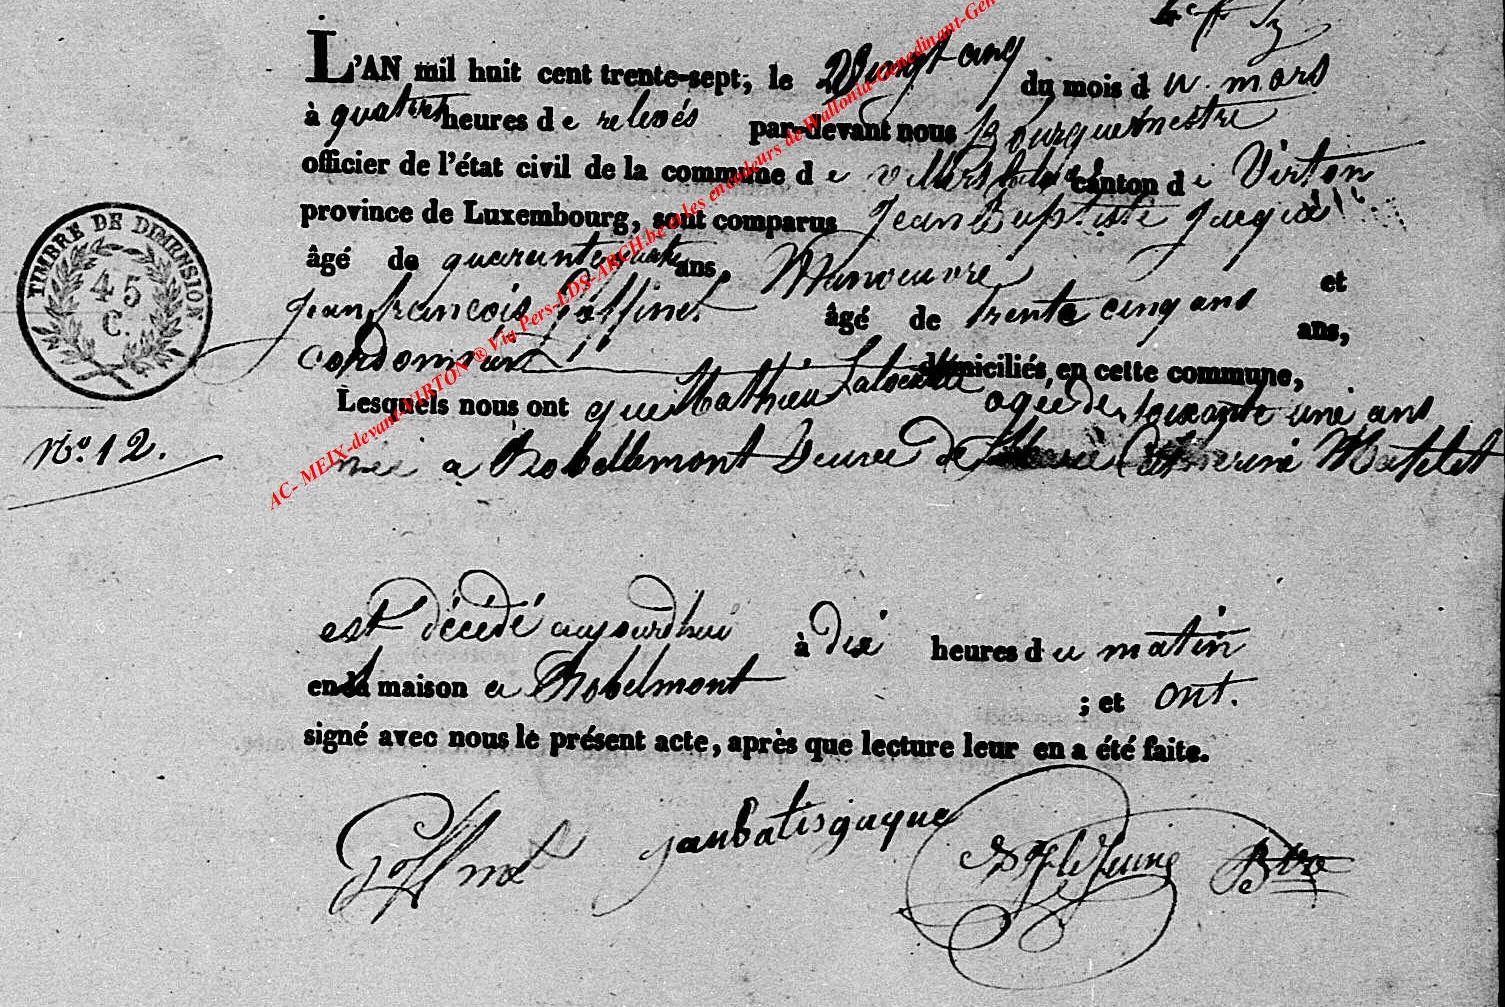 L'AN mil huit cent trente-sept, le Vingt cinq du mois d u mars
à quatres heures d e relevés par-devant nous Bourguemestre
officier de l'état civil de la commune d e villers canton d e Virton
province de Luxembourg, sont comparus Jean Baptiste Jacque
âgé de quarante quatre ans, Manoeuvre et
jean francois Goffinet âgé de trente cinq ans ans,
Cordonnier domiciliés en cette commune,
Lesquels nous ont que Mathieu agée de soixante une ans
N.o 12.
née a Robellemont Veuve de Catherine Mathelet
est décédé aujourdhui à dix heures d u matin
en la maison a Robelmont ; et ont.
signé avec nous le présent acte, après que lecture leur en a été faite.
Goffinet janbatisjaque Lejeune Btre
TIMBRE DE DIMENSION.
45
C.
AC- MEIX-devant-VIRTON ® Via Pers-LDS-ARCH.be & Les en codeurs de Wallonia-Genedinant-Gen